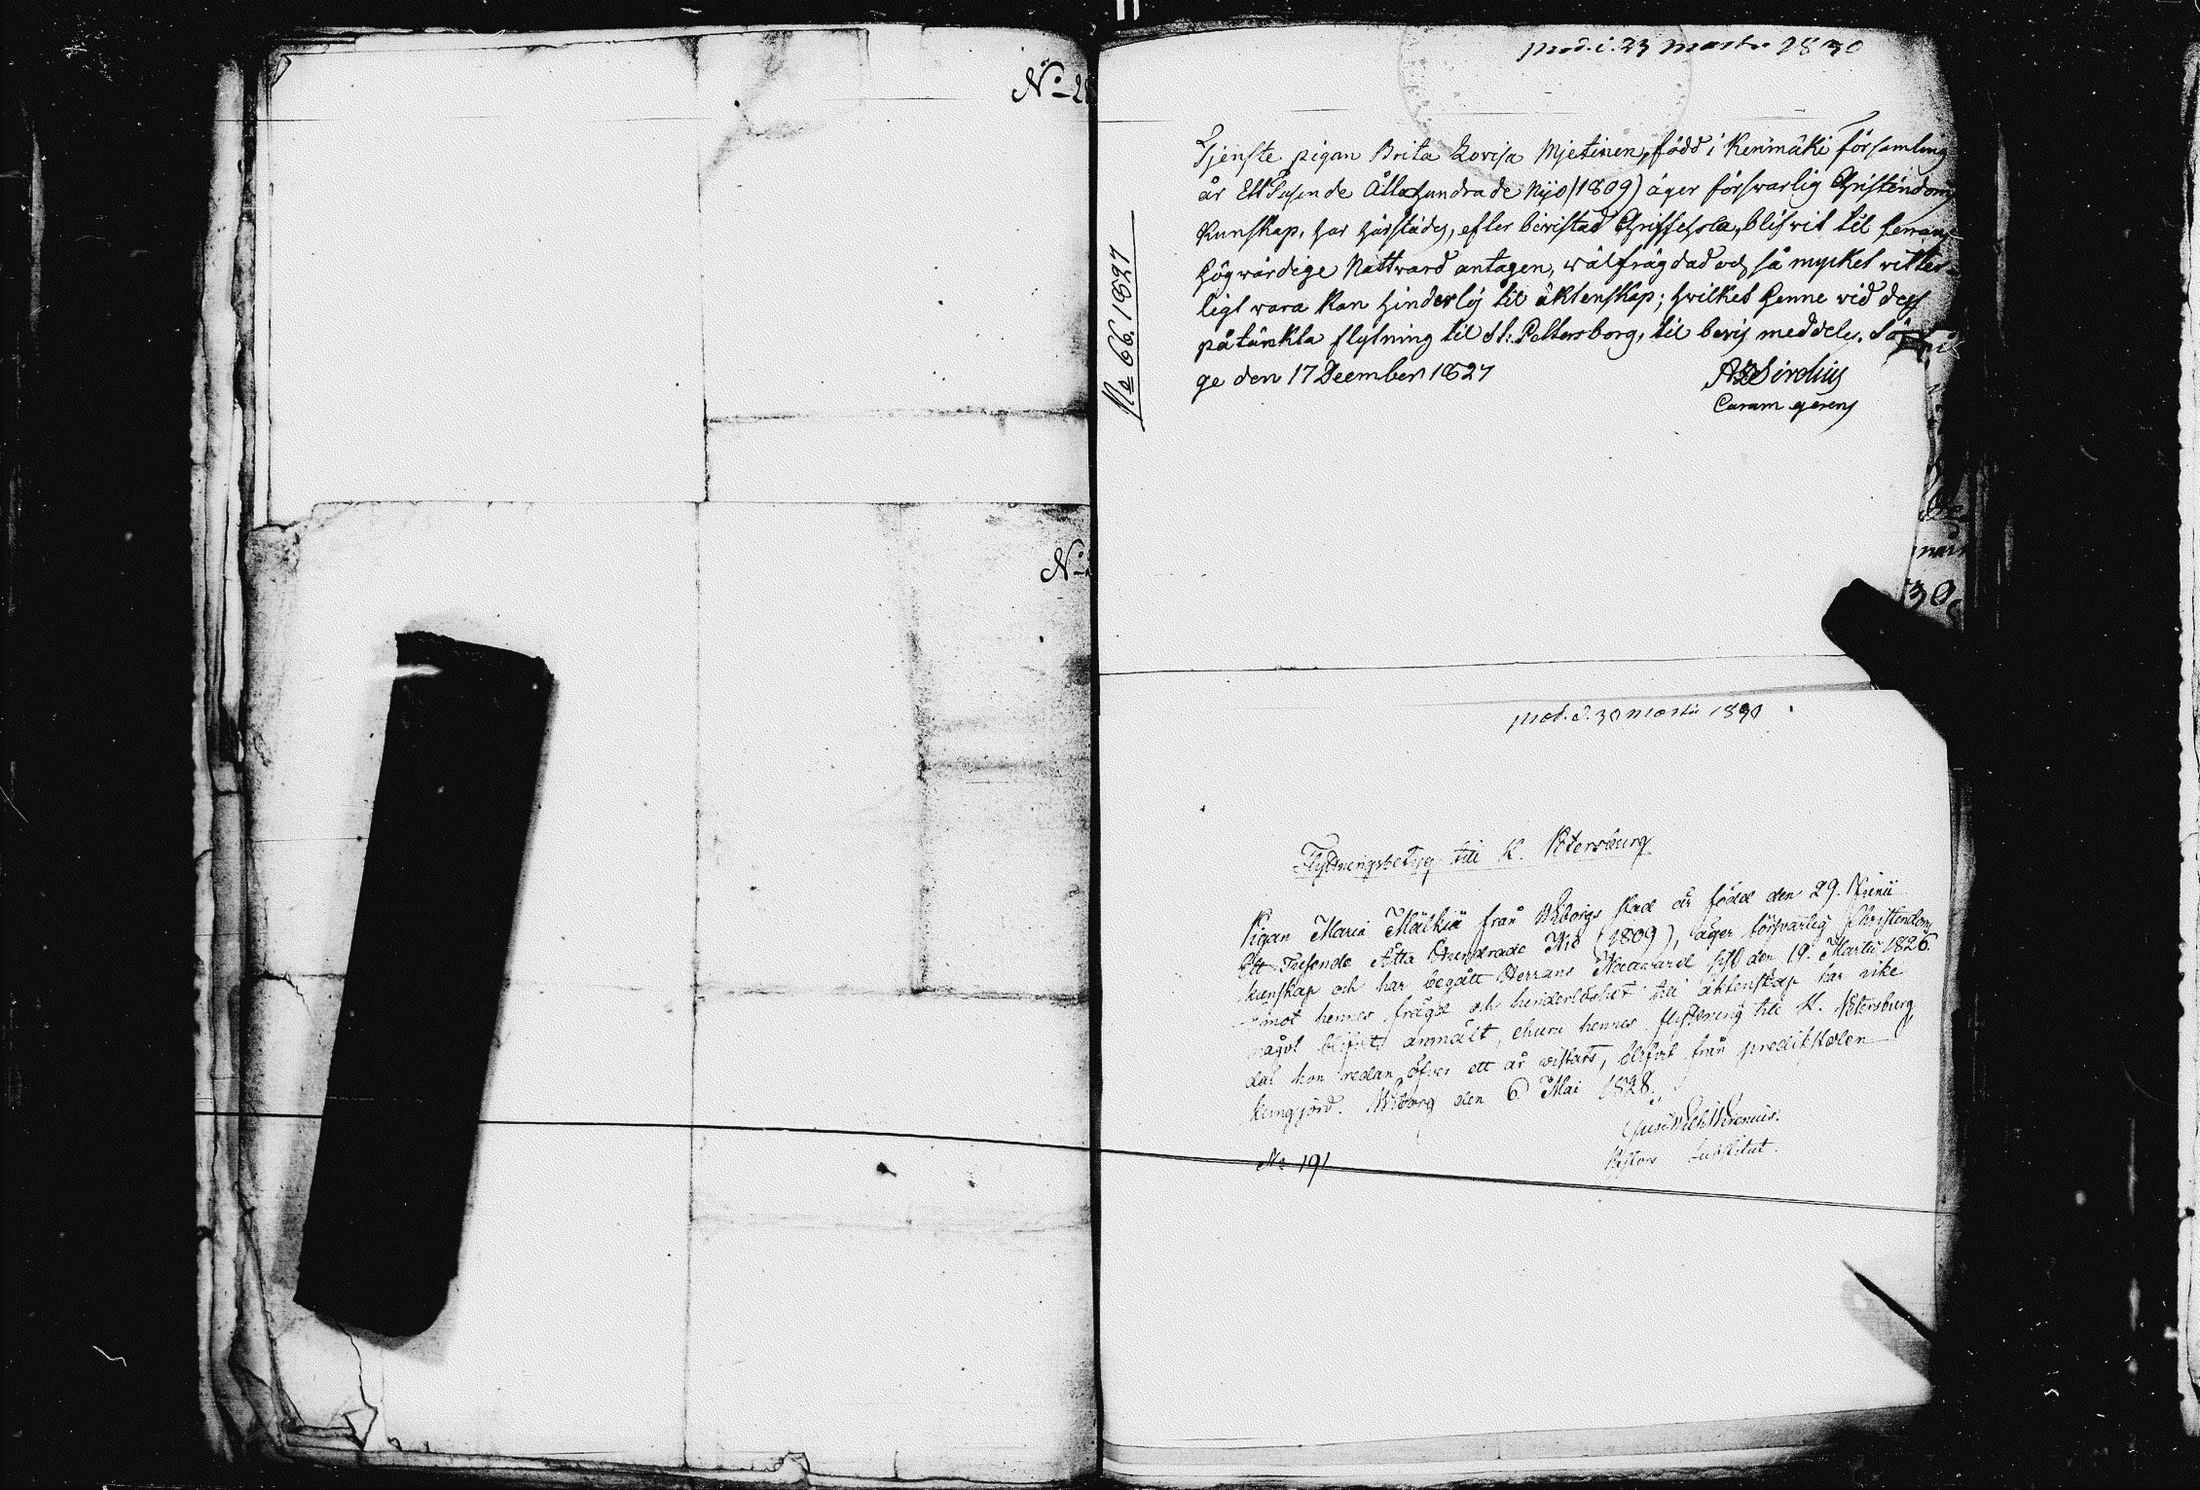 N:o 2
N:o
prod. d. 23 Martii 1830
No 66. 1827
Tjenste pigan Brita Lovisa Mjetinen, född i Kerimäki församling
år Ett Tusende Åttahundrade Nijo (1809) äger försvarlig Christendoms
Kunskap, har härstädes, efter bevistad Skriftskola, blifvit til Herrans
högwärdige Nattvard antagen, wälfrägdad och så mycket vitter-
ligt vara kan hinderlös til äktenskap; hvilket henne vid dess
påtänkta flytning til St: Pettersborg, til bevis meddeles. Sä
ge den 17 December 1827
Sirelius
Curam gerens
30
prod. d. 30 Martii 1830
Flyttningsbetyg till St. Petersburg
Pigan Maria Mälkiä från Wiborgs Stad är född den 29. Junii
Ett Tusende Åtta Hundrade Nio (1809), äger försvarlig Christendoms
kunskap och har begått Herrans Nattvard sist den 19. Martii 1826.
emot hennes frägd och hinderlöshet till äktenskap har icke
något blifvit anmält, ehuru hennes flyttning till St. Petersburg
der hon redan öfver ett år vistats, blifvit från predikstolen
kungjord. Wiborg den 6 Mai 1828.
Pastors Substitut.
No 191